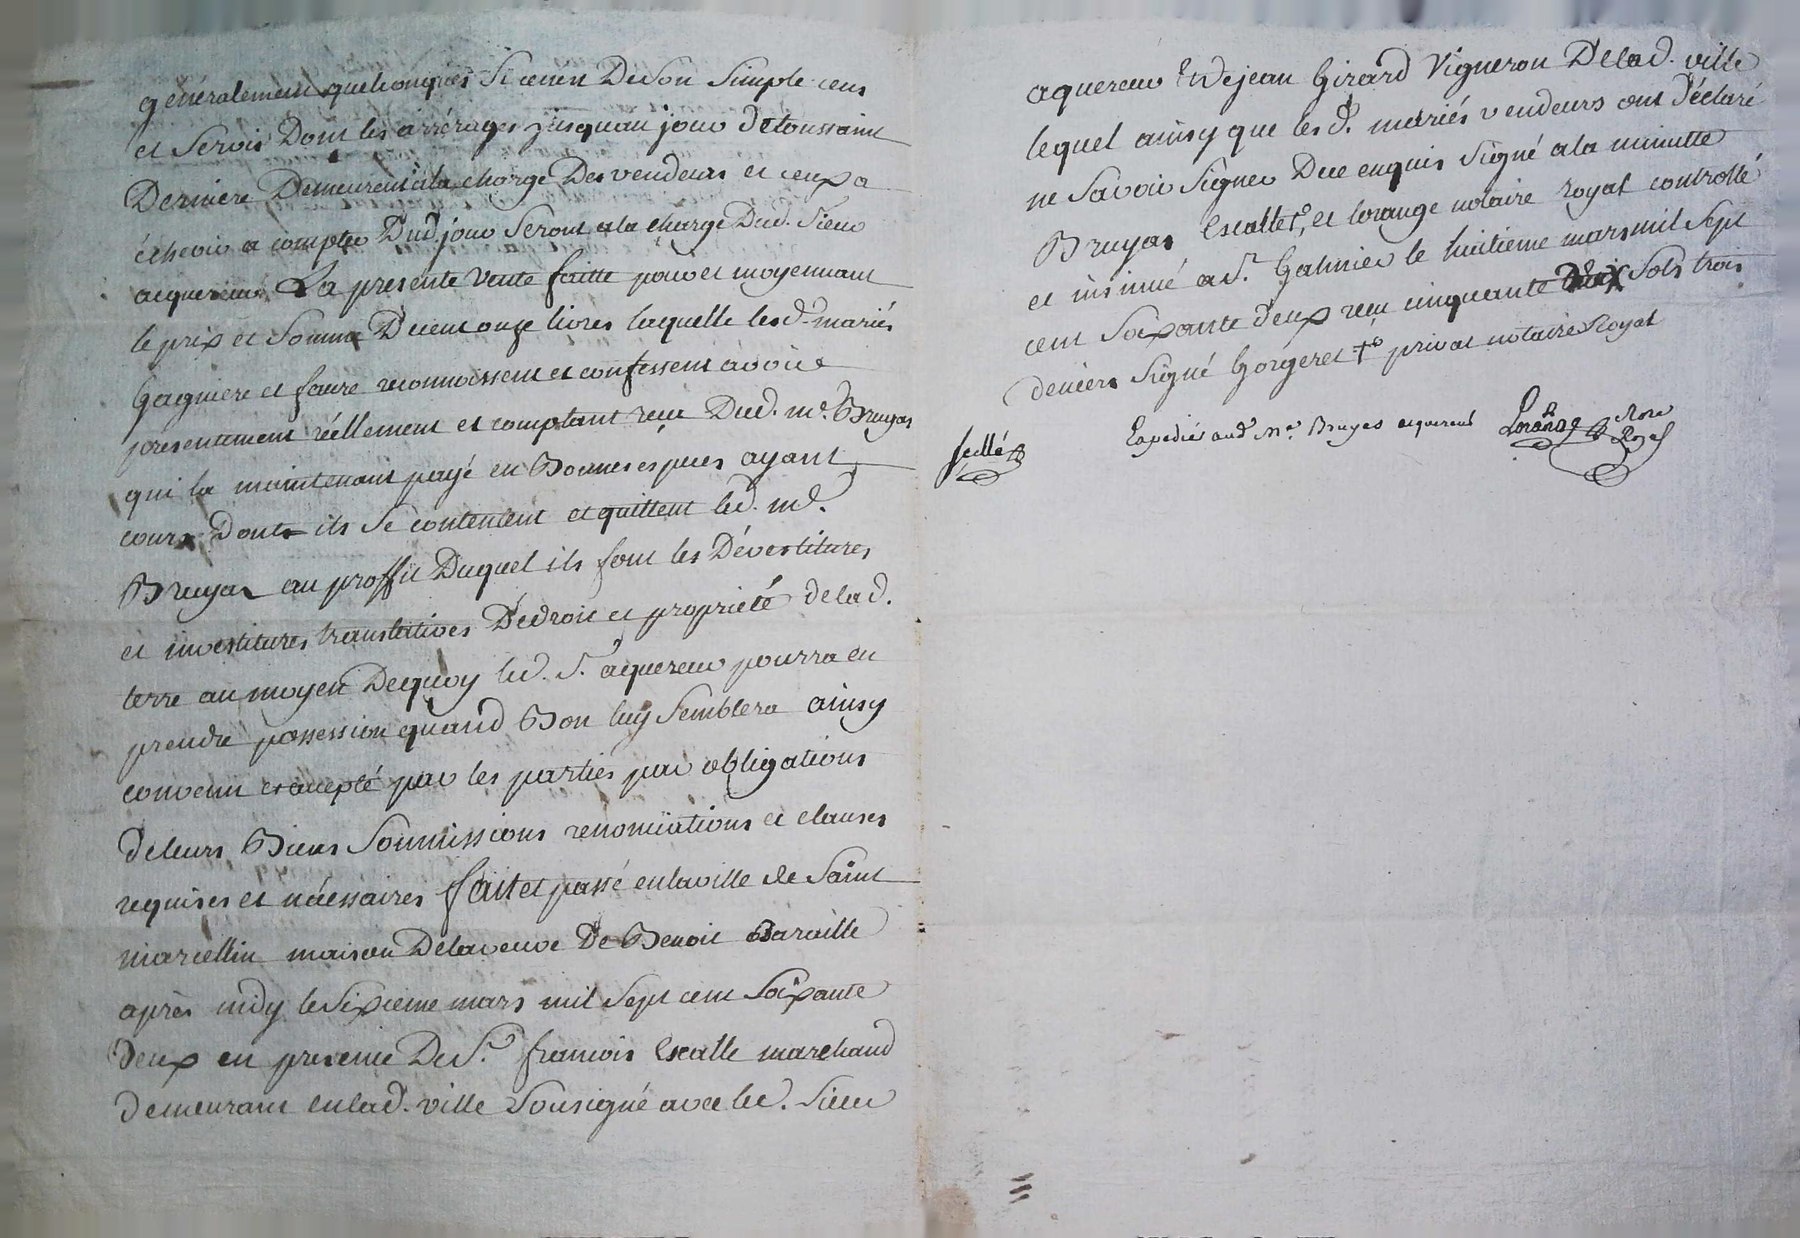 généralement quelconques Si cenen De Son Simple cens
et Servis Dont les arrérages jusquau jour de toussaint
Derniere Demeurent ala charge Des vendeurs et ceux a
écheoir a compter Dud. jour Seront ala charge Dud. Sieur
aquereur La presente vente faitte pour et moyennant
le prix et Somme De cent onze livres laquelle les d. mariés
Gagniere et faure reconnoissent et confessent avoir
presentement réellement et comptant reçu Dud. me. Bruyas
qui la maintenant payé en Bonnes especes ayant
cours Dont ils Se contentent et quittent led. me.
Bruyas au proffit Duquel ils font les Dévestitures
et investitures translatives De droit et propriété de lad.
terre au moyen Dequoy led. Sr. aquereur pourra en
prendre possession quand Bon luy Semblera ainsy
convenu et accepté par les parties par obligations
de leurs Biens Soumissions renonciations et clauses
requises et nécessaires fait et passé en la ville de Saint
marcellin maison De la veuve De Benoit Baraille
après midy le Sixieme mars mil Sept cent Soixante
Deux en presence De Sr. francois Escalle marchand
demeurant en lad. ville Sousigné avec led. Sieur
aquereur et De jean Girard Vigneron De lad. ville
lequel ainsy que les d. mariés vendeurs ont déclaré
ne Savoir Signer De ce enquis Signé a la minutte
Bruyas Escalle et lorange notaire royal controllé
et insinué a St. Galmier le huitieme mars mil Sept
cent Soixante deux reçu cinquante Sols trois
deniers Signé Gorgeret privat notaire Royal
Expedié aud. Me. Bruyas aquereur Lorange Nore Royal
scellé